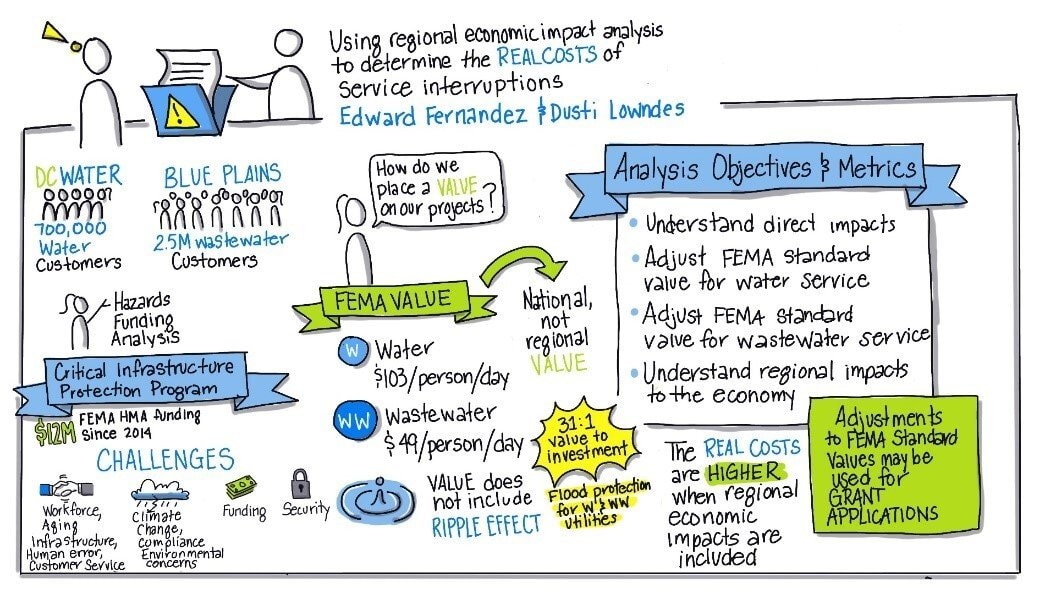 Using regional economic impact analysis
to determine the REAL COSTS of
service interruptions
Edward Fernandez & Dusti Lowndes
DC WATER
700,000
Water
Customers
BLUE PLAINS
2.5M wastewater
Customers
Hazards
Funding
Analysis
Critical Infrastructure
Protection Program
$12M FEMA HMA funding
since 2014
CHALLENGES
Workforce,
Aging
Infrastructure,
Human error,
Customer Service
Climate
Change,
Compliance
Environmental
concerns
Funding
Security
How do we
place a VALUE
on our projects?
FEMA VALUE
W Water
$103/person/day
WW Wastewater
$49/person/day
VALUE does
not include
RIPPLE EFFECT
National,
not
regional
VALUE
31:1
value to
investment
Flood protection
for W & WW
utilities
Analysis Objectives & Metrics
• Understand direct impacts
• Adjust FEMA Standard
value for water service
• Adjust FEMA Standard
value for wastewater service
• Understand regional impacts
to the economy
The REAL COSTS
are HIGHER
when regional
economic
impacts are
included
Adjustments
to FEMA Standard
Values may be
used for
GRANT
APPLICATIONS